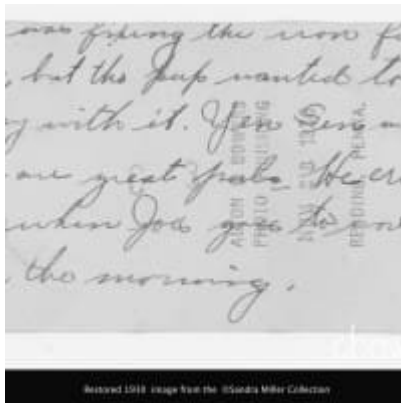 was fixing the iron f
, but the pup wanted to
y with it. Yen Sen
are great pals. He cr
when Joe goes to
the morning.
PHOTO
READING PENNA.
Restored 1930 image from the ©Sandra Miller Collection